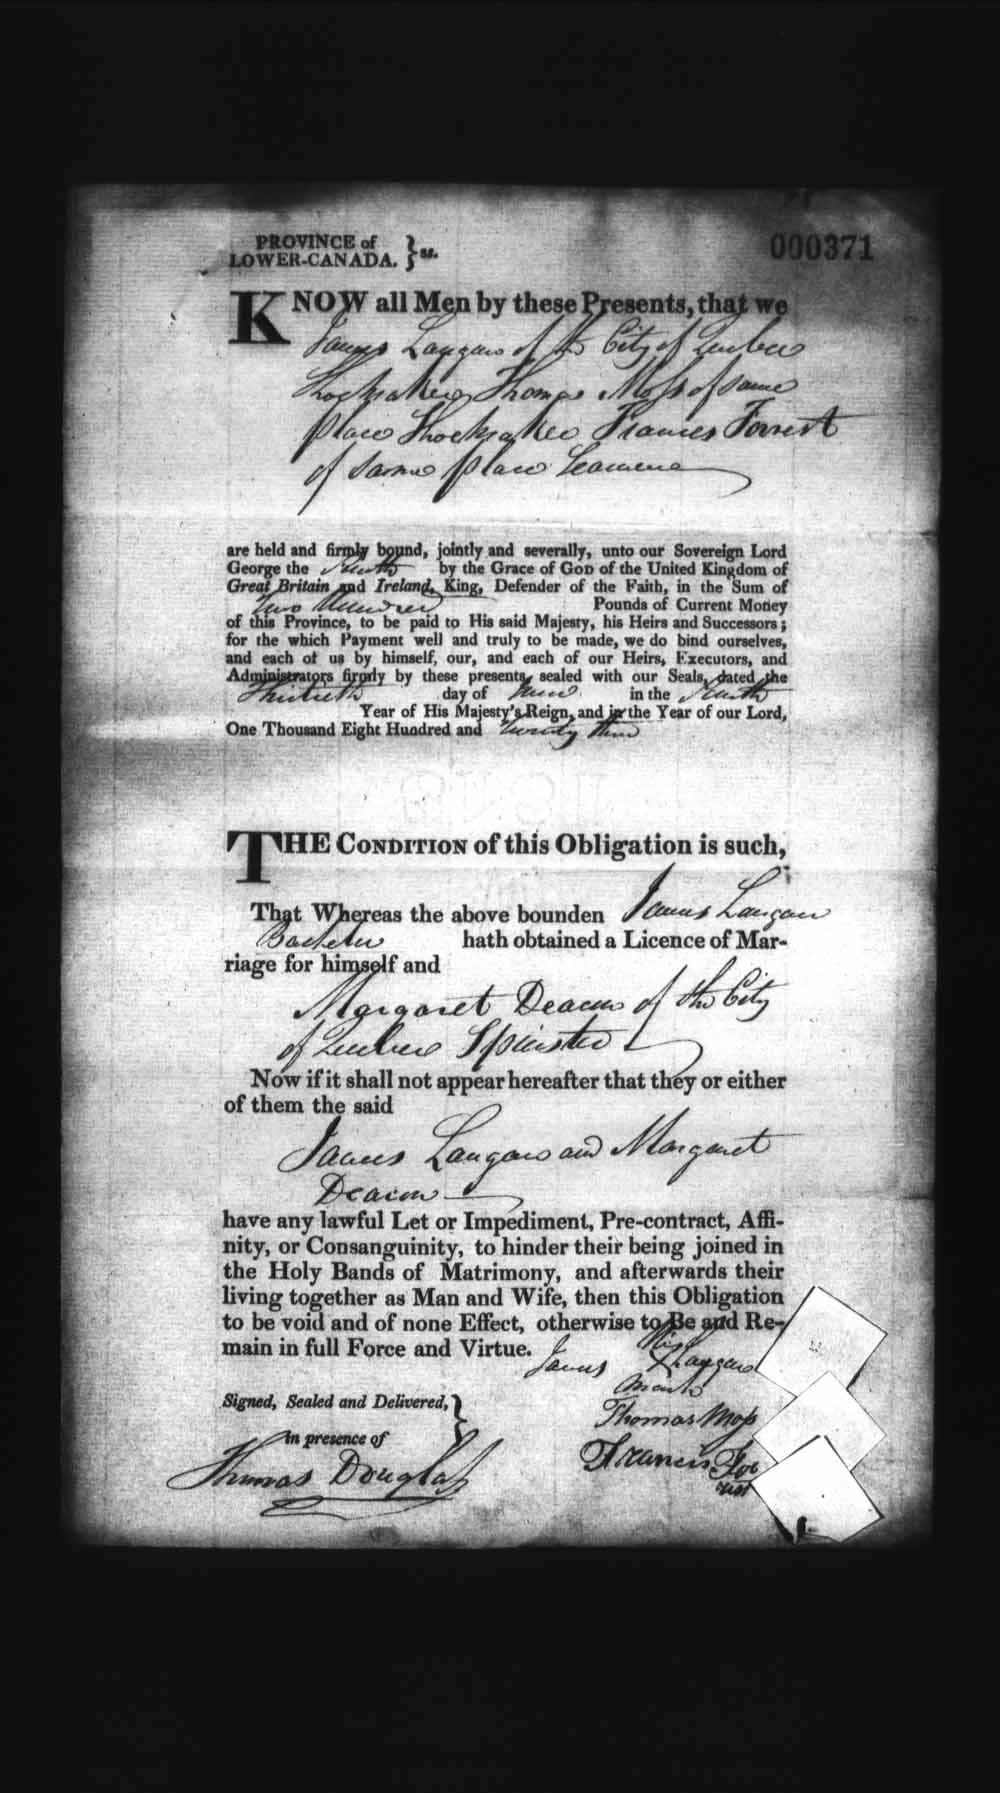 PROVINCE of
LOWER-CANADA. } ss.
000371
KNOW all Men by these Presents, that we
James Langan of the City of Quebec
Thomas Moss of same
place Francis Forrest
of same place
are held and firmly bound, jointly and severally, unto our Sovereign Lord
George the Fourth by the Grace of God of the United Kingdom of
Great Britain and Ireland, King, Defender of the Faith, in the Sum of
Two Hundred Pounds of Current Money
of this Province, to be paid to His said Majesty, his Heirs and Successors;
for the which Payment well and truly to be made, we do bind ourselves,
and each of us by himself, our, and each of our Heirs, Executors, and
Administrators firmly by these presents, sealed with our Seals, dated the
Thirtieth day of June in the Fourth
Year of His Majesty's Reign, and in the Year of our Lord,
One Thousand Eight Hundred and twenty three
THE CONDITION of this Obligation is such,
That Whereas the above bounden James Langan
Bachelor hath obtained a Licence of Mar-
riage for himself and
Margaret Deacon of the City
of Quebec Spinster
Now if it shall not appear hereafter that they or either
of them the said
James Langan and Margaret
Deacon
have any lawful Let or Impediment, Pre-contract, Affi-
nity, or Consanguinity, to hinder their being joined in
the Holy Bands of Matrimony, and afterwards their
living together as Man and Wife, then this Obligation
to be void and of none Effect, otherwise to Be and Re-
main in full Force and Virtue.
his
James X Langan
mark
Signed, Sealed and Delivered, }
in presence of
Thomas Moss
Francis For
rest
Thomas Douglass